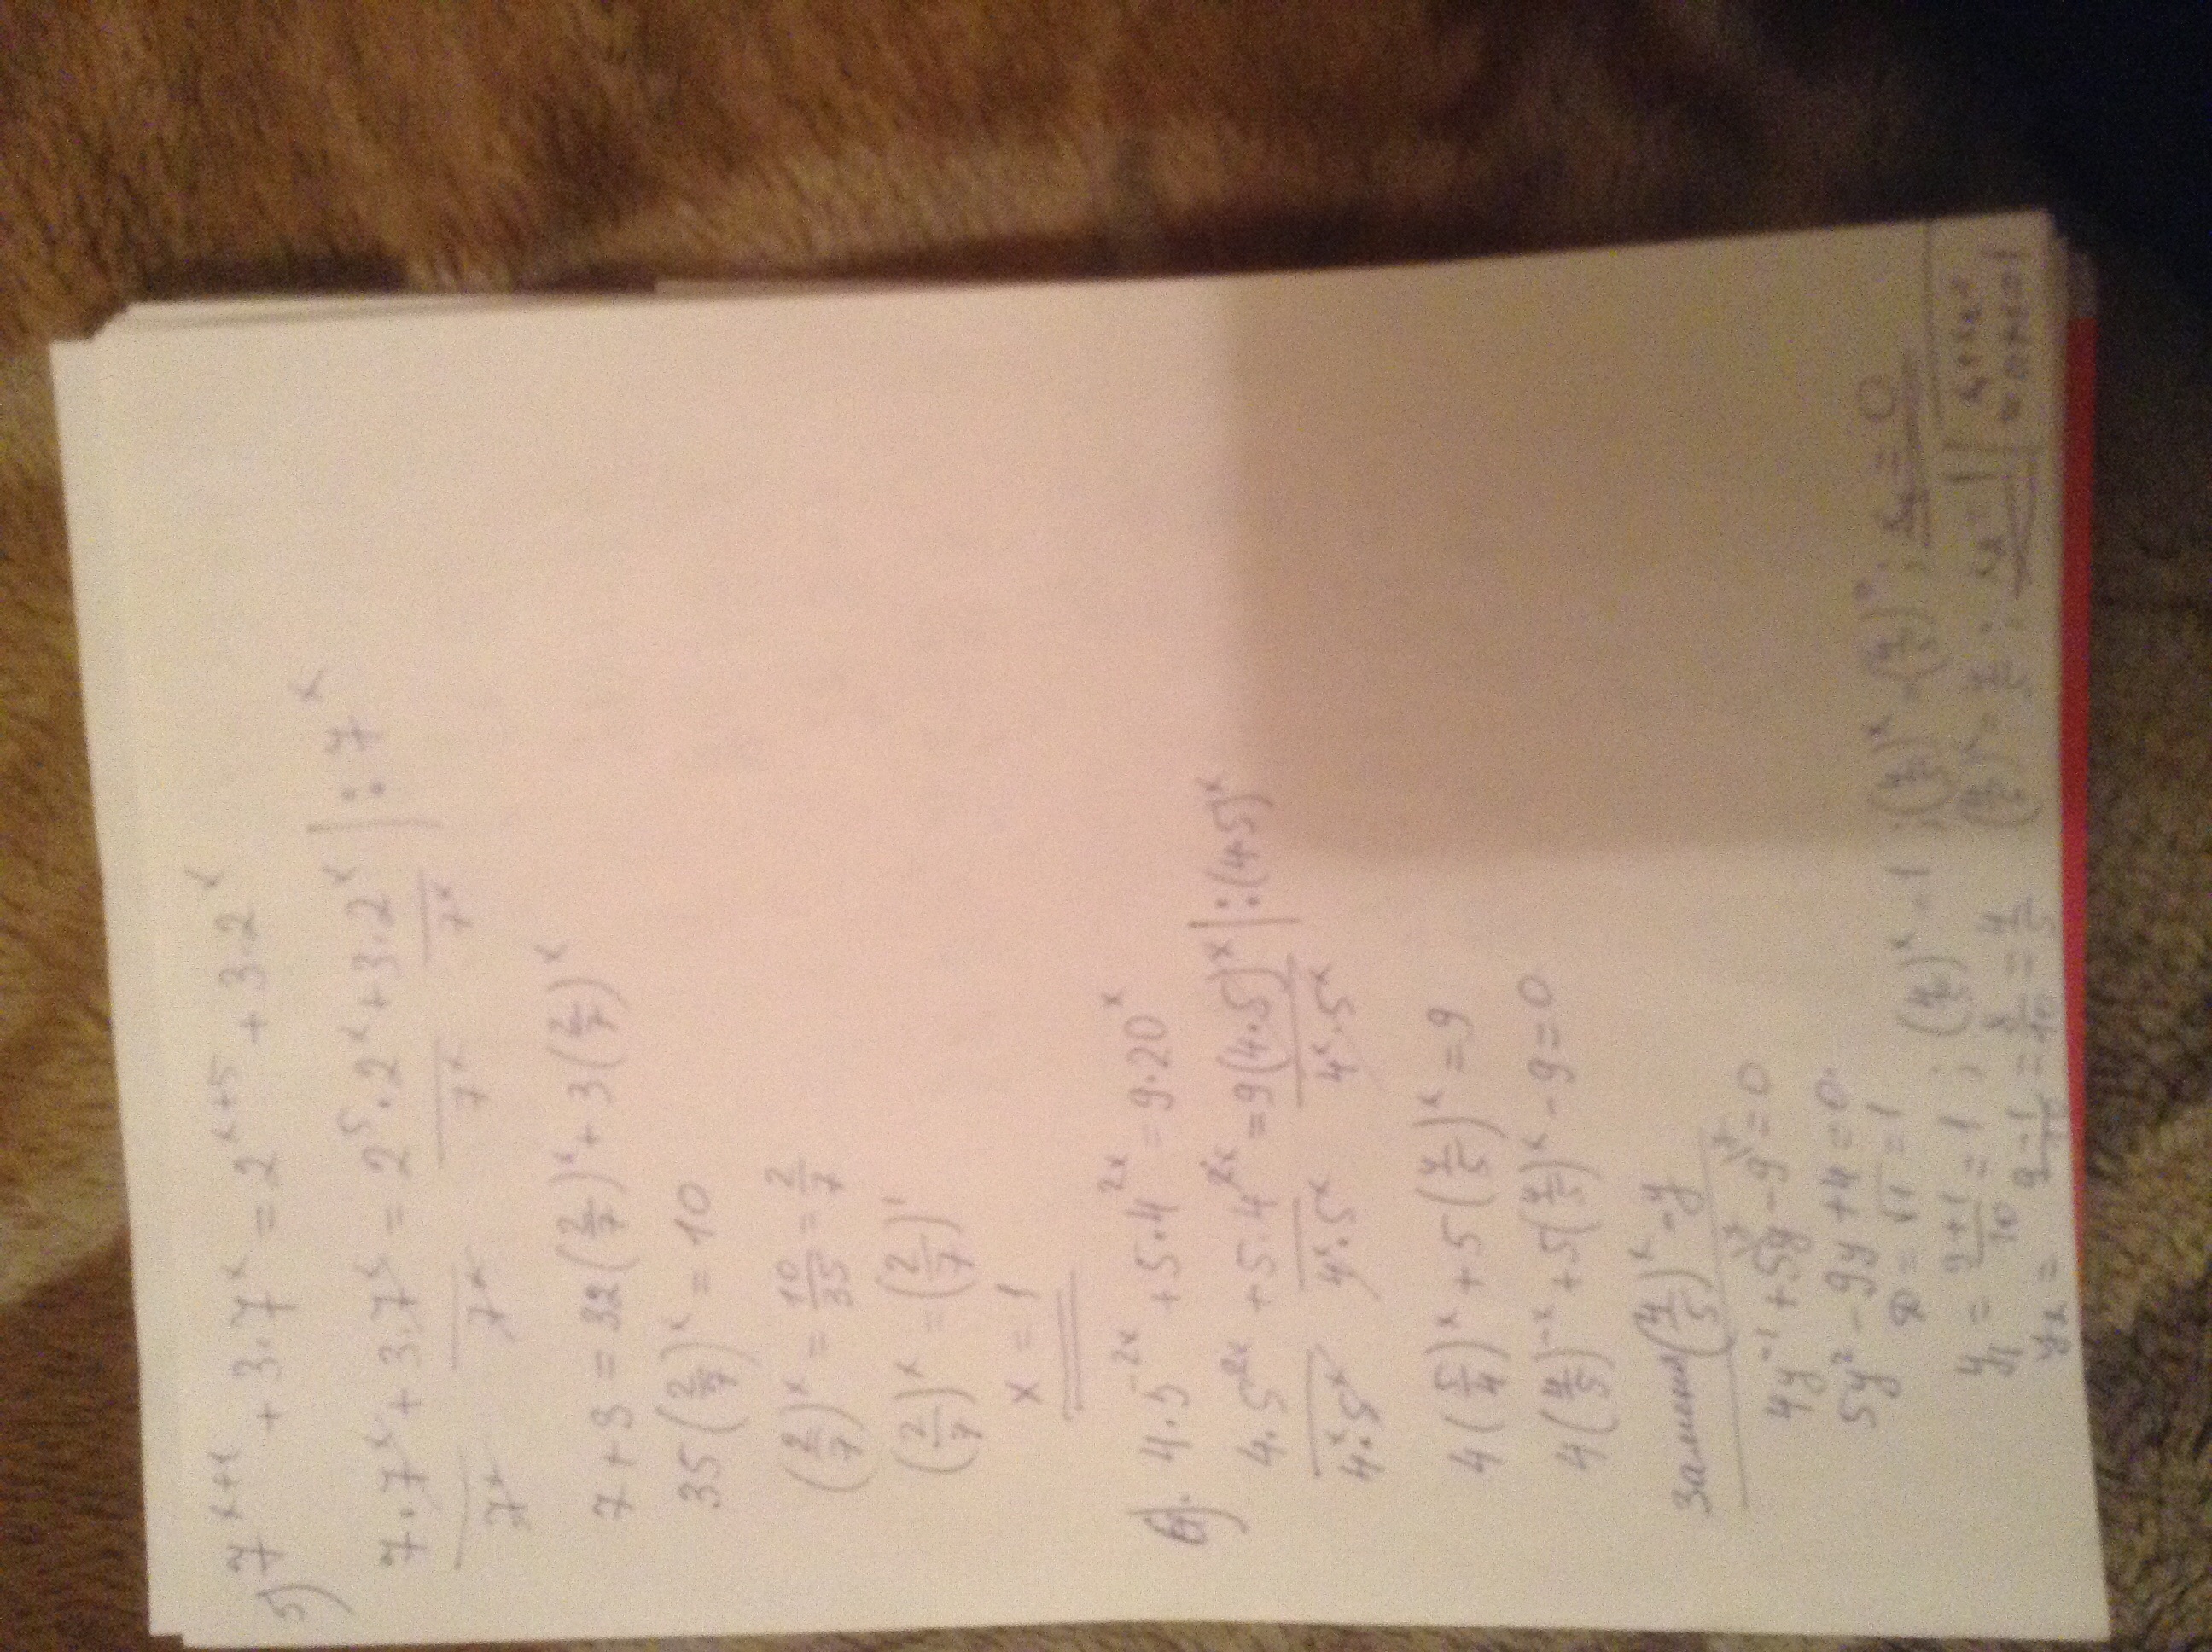 5) 7^(x+1) + 3·7^x = 2^(x+5) + 3·2^x
7·7^x + 3·7^x = 2^5·2^x + 3·2^x | : 7^x
7^x 7^x 7^x 7^x
7+3 = 32(2/7)^x + 3(2/7)^x
35(2/7)^x = 10
(2/7)^x = 10/35 = 2/7
(2/7)^x = (2/7)^1
x = 1
6). 4·5^(-2x) + 5·4^(2x) = 9·20^x
4·5^(2x) + 5·4^(2x) = 9(4·5)^x | : (4·5)^x
4^x·5^x 4^x·5^x 4^x·5^x
4(5/4)^x + 5(4/5)^x = 9
4(4/5)^(-x) + 5(4/5)^x - 9 = 0
Замена (4/5)^x = y
4y^(-1) + 5y - 9 = 0
5y² - 9y + 4 = 0
= √1 = 1
y₁ = 9+1/10 = 1 ; (4/5)^x = 1 ; (4/5)^x = (4/5)^0 ; x₁ = 0
y₂ = 9-1/10 = 8/10 = 4/5 (4/5)^x = 4/5 ; x₂ = 1
x₁+x₂=
=0+1=1